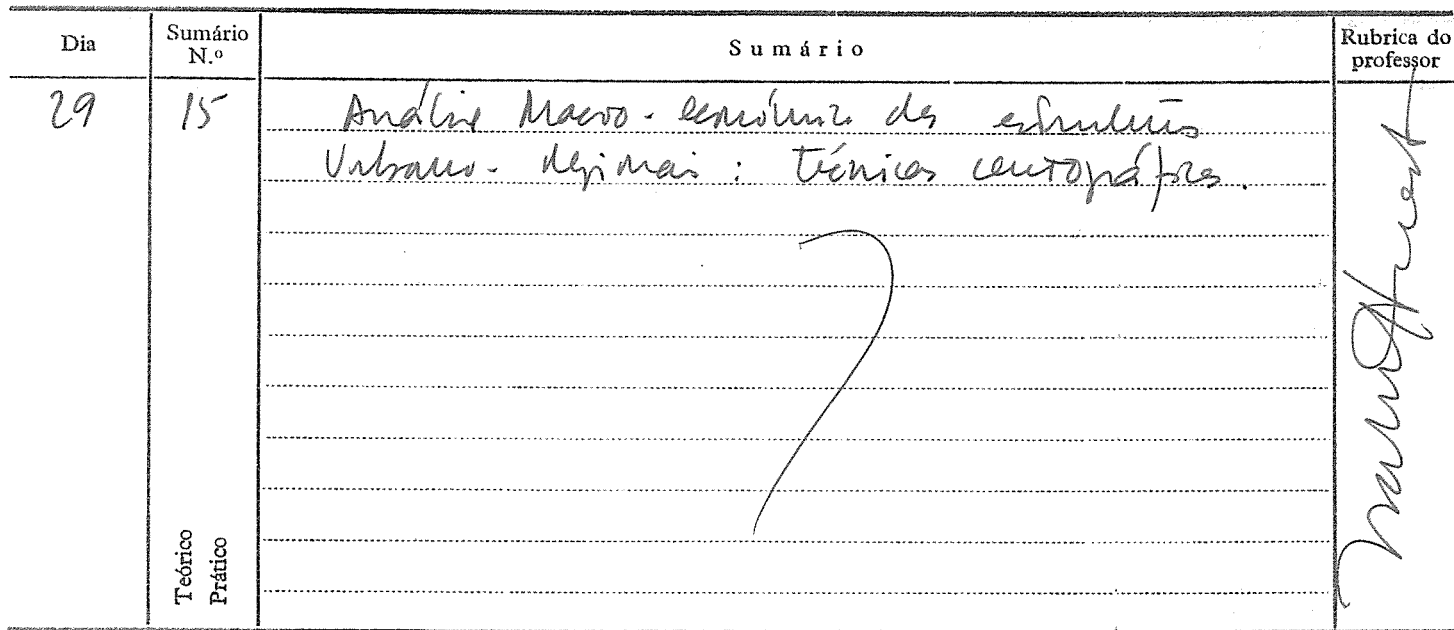 Dia
Sumário N.º
Sumário
Rubrica do professor
29
15
Análise Macro-económica das estruturas
Urbano-regionais: técnicas centográficas.
Teórico
Prático